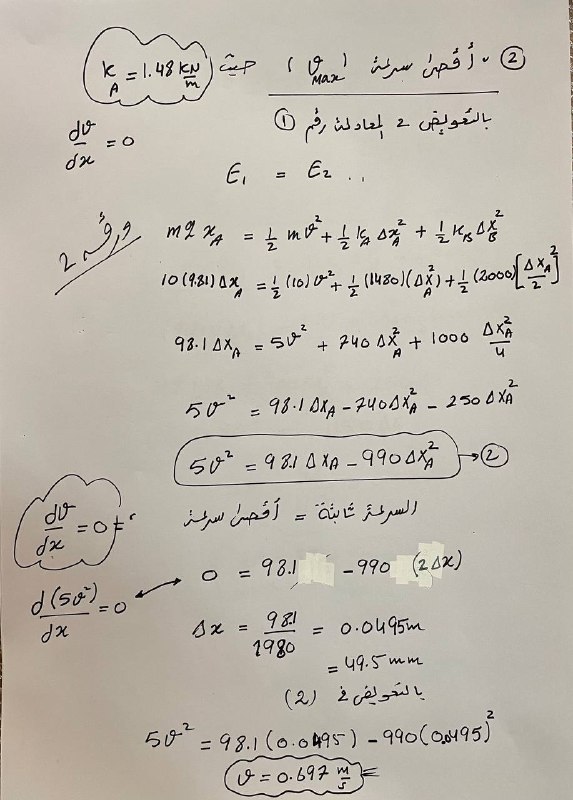 ② - أقصى سرعة (v max) حيث K_A = 1.48 KN/m
بالتعويض ع المعادلة رقم ①
dv/dx = 0
E₁ = E₂ ..
ورقه 2
mg x_A = 1/2 mv² + 1/2 k_A Δx_A² + 1/2 k_B Δx_B²
10(9.81)Δx_A = 1/2 (10)v² + 1/2 (1480)(Δx_A²) + 1/2 (2000)[Δx_A/2]²
98.1 Δx_A = 5v² + 740 Δx_A² + 1000 Δx_A²/4
5v² = 98.1 Δx_A - 740Δx_A² - 250 Δx_A²
5v² = 98.1 Δx_A - 990 Δx_A² → ②
dv/dx = 0 ⇐ السرعة ثابتة = أقصى سرعة
d(5v²)/dx = 0 ↔ 0 = 98.1 - 990 (2Δx)
Δx = 98.1/1980 = 0.0495m
= 49.5 mm
بالتعويض في (2)
5v² = 98.1(0.0495) - 990(0.0495)²
v = 0.697 m/s